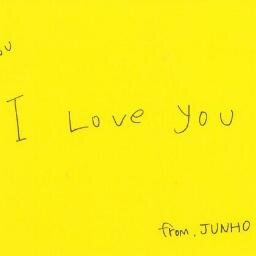 I Love you
from. JUNHO